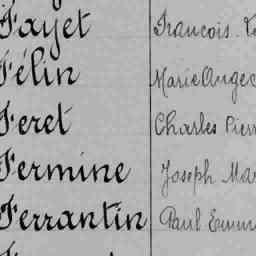 Fayet François
Félin Marie Ange
Feret Charles Pierr
Fermine Joseph Mar
Ferrantin Paul Emm